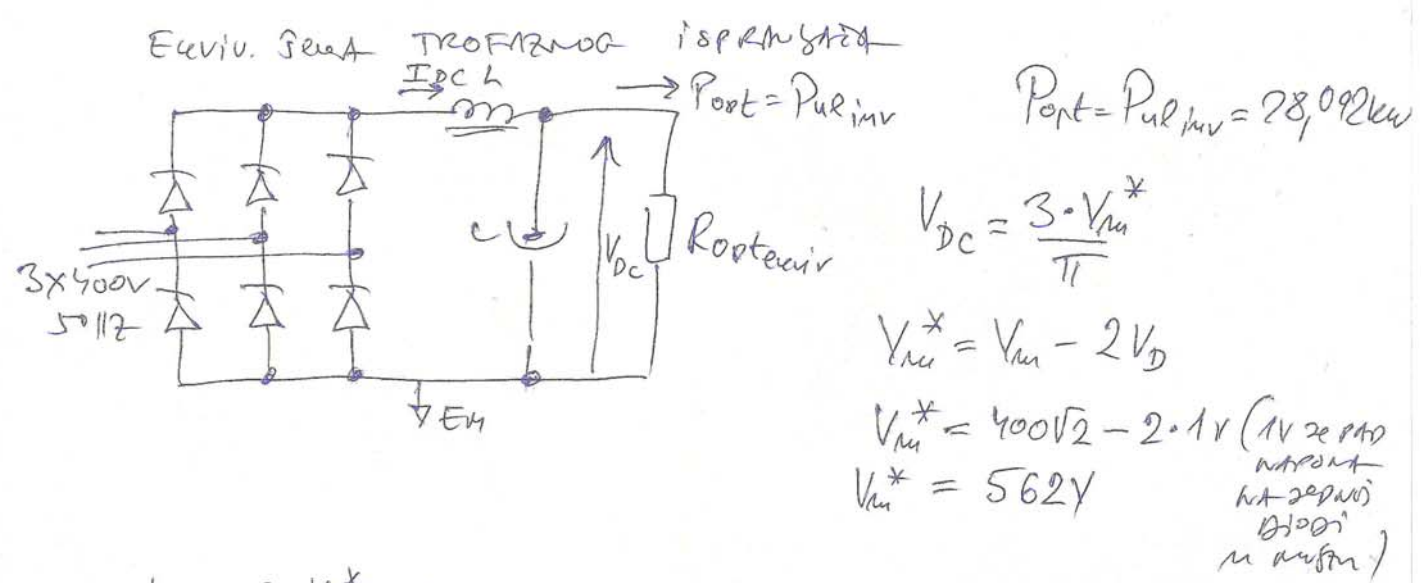 Ekviv. šema TROFAZNOG ISPRAVLJAČA
I_DC L
P_opt = P_ul inv
P_opt = P_ul inv = 28,092 kW
V_DC = 3·V_m* / π
C
V_DC
R_opterećenja
3x400V
50HZ
V_m* = V_m - 2V_D
V_m* = 400√2 - 2·1V (1V je PAD
NAPONA
NA JEDNOJ
DIODI
u mostu)
V_m* = 562V